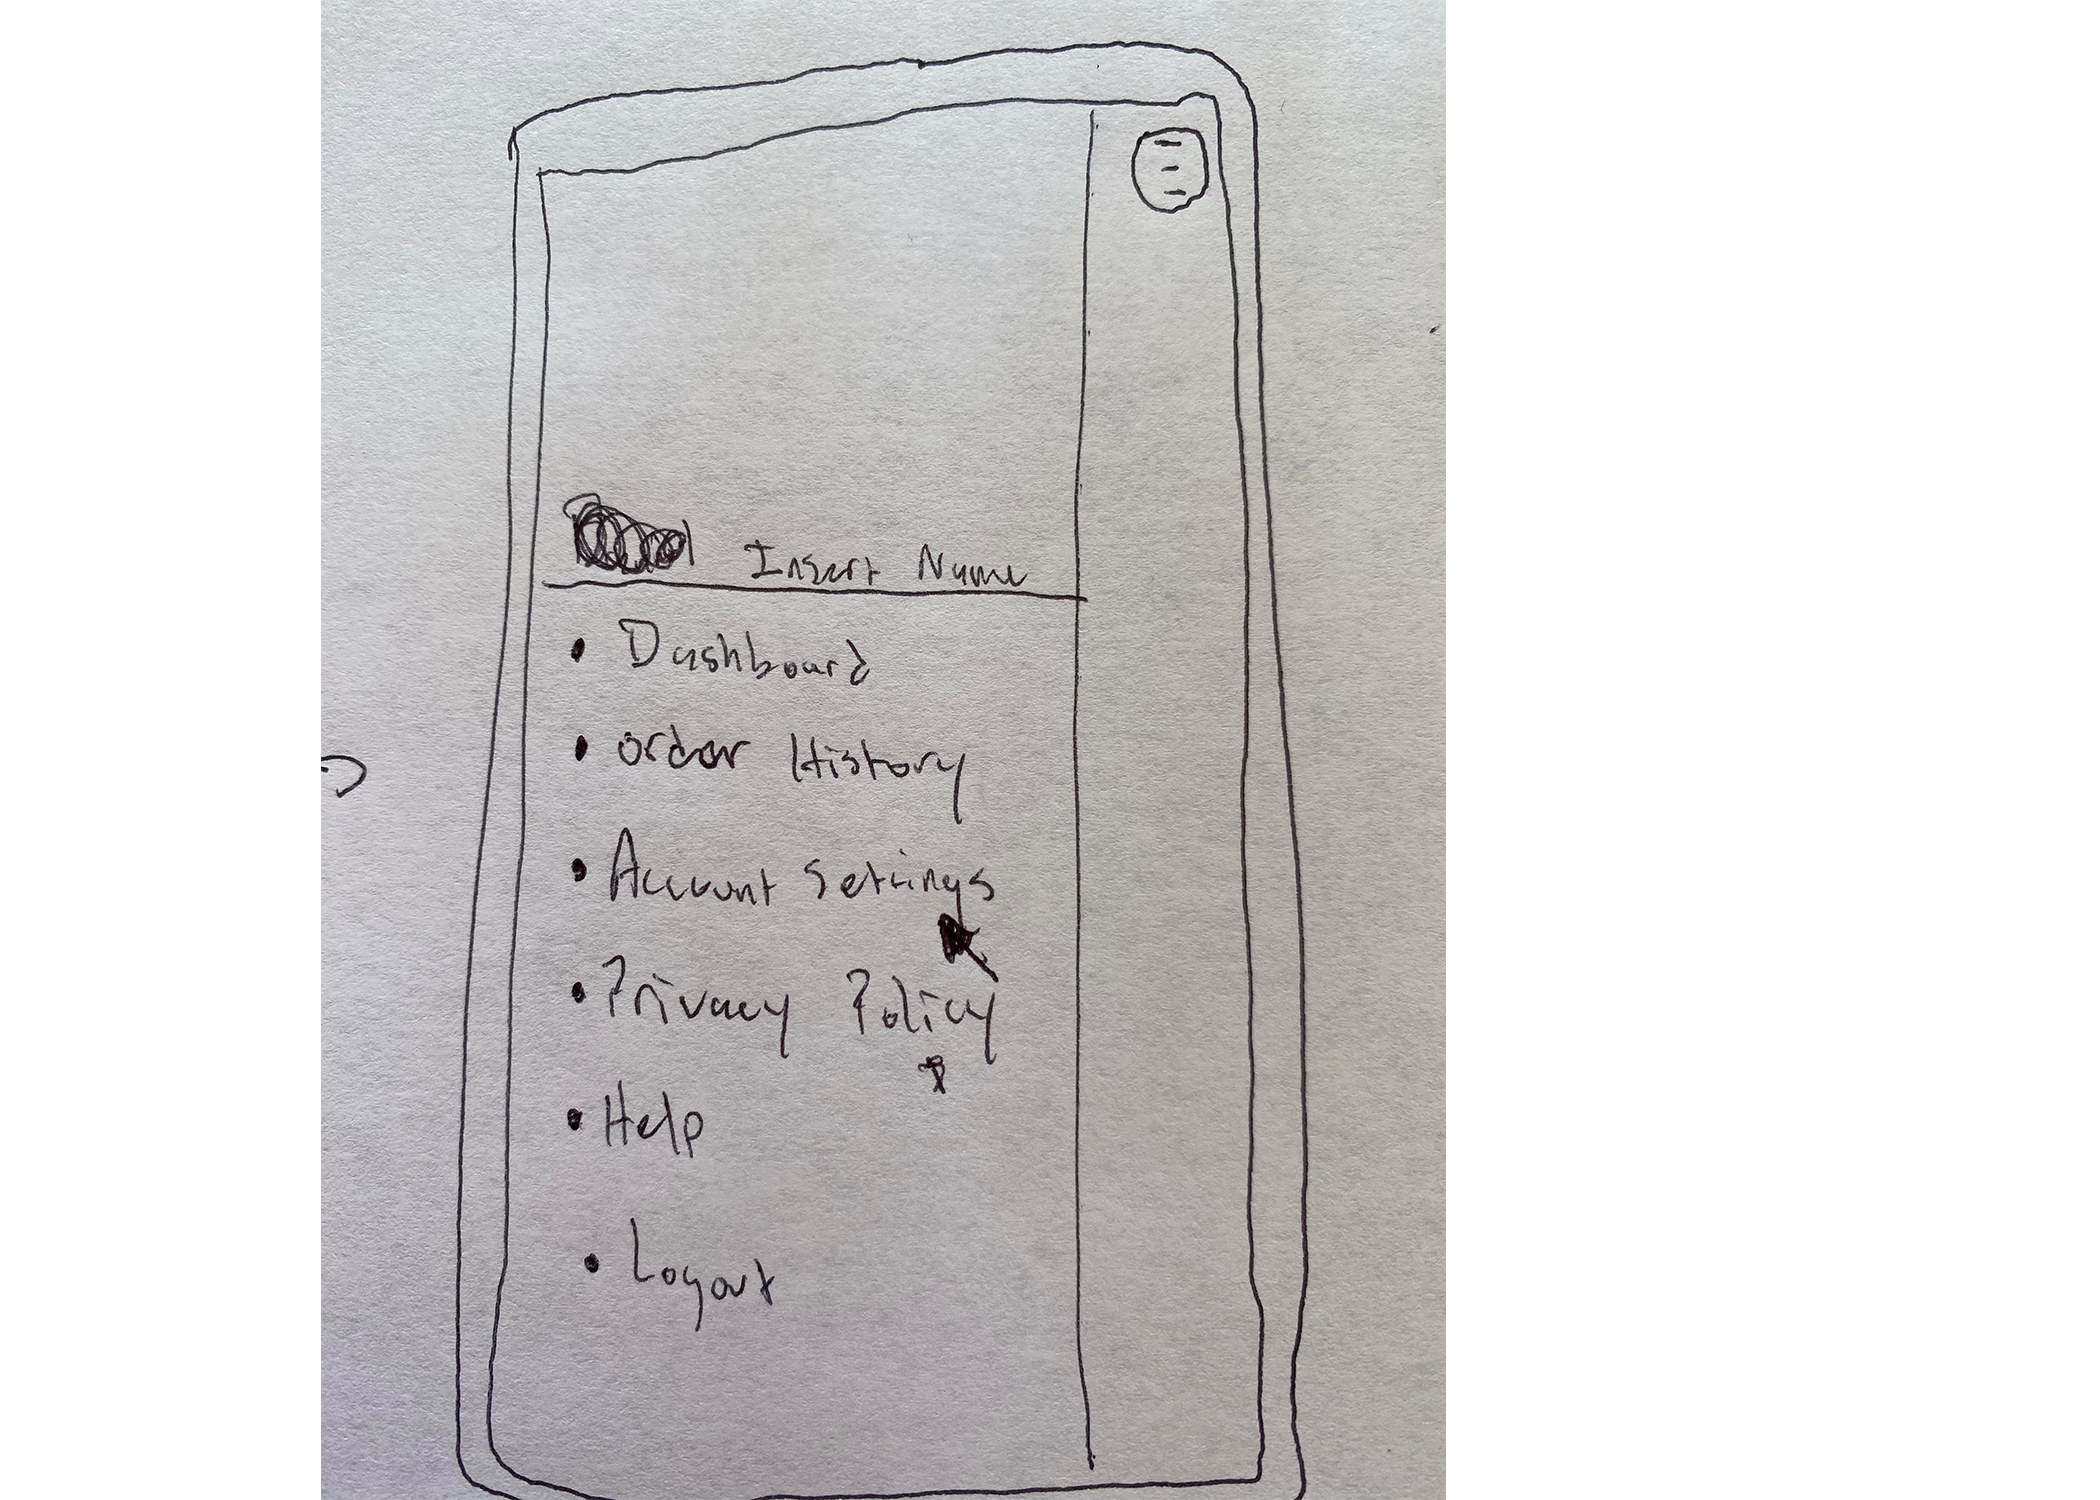 Insert Name
• Dashboard
• Order History
• Account Settings
• Privacy Policy
• Help
• Logout